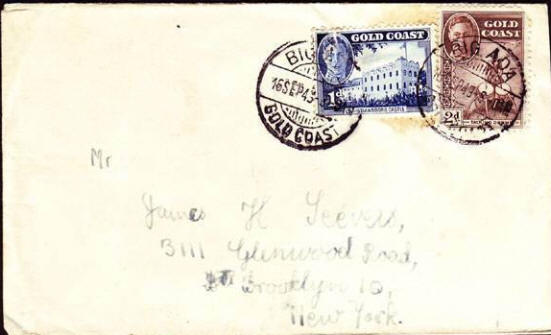 GOLD COAST
1d
CHRISTIANSBORG CASTLE
GOLD COAST
2d
BIG
16 SEP 49
GOLD COAST
BIG ADA
Mr
James H Seevers,
3111 Glenwood Road,
Brooklyn 10,
New York.